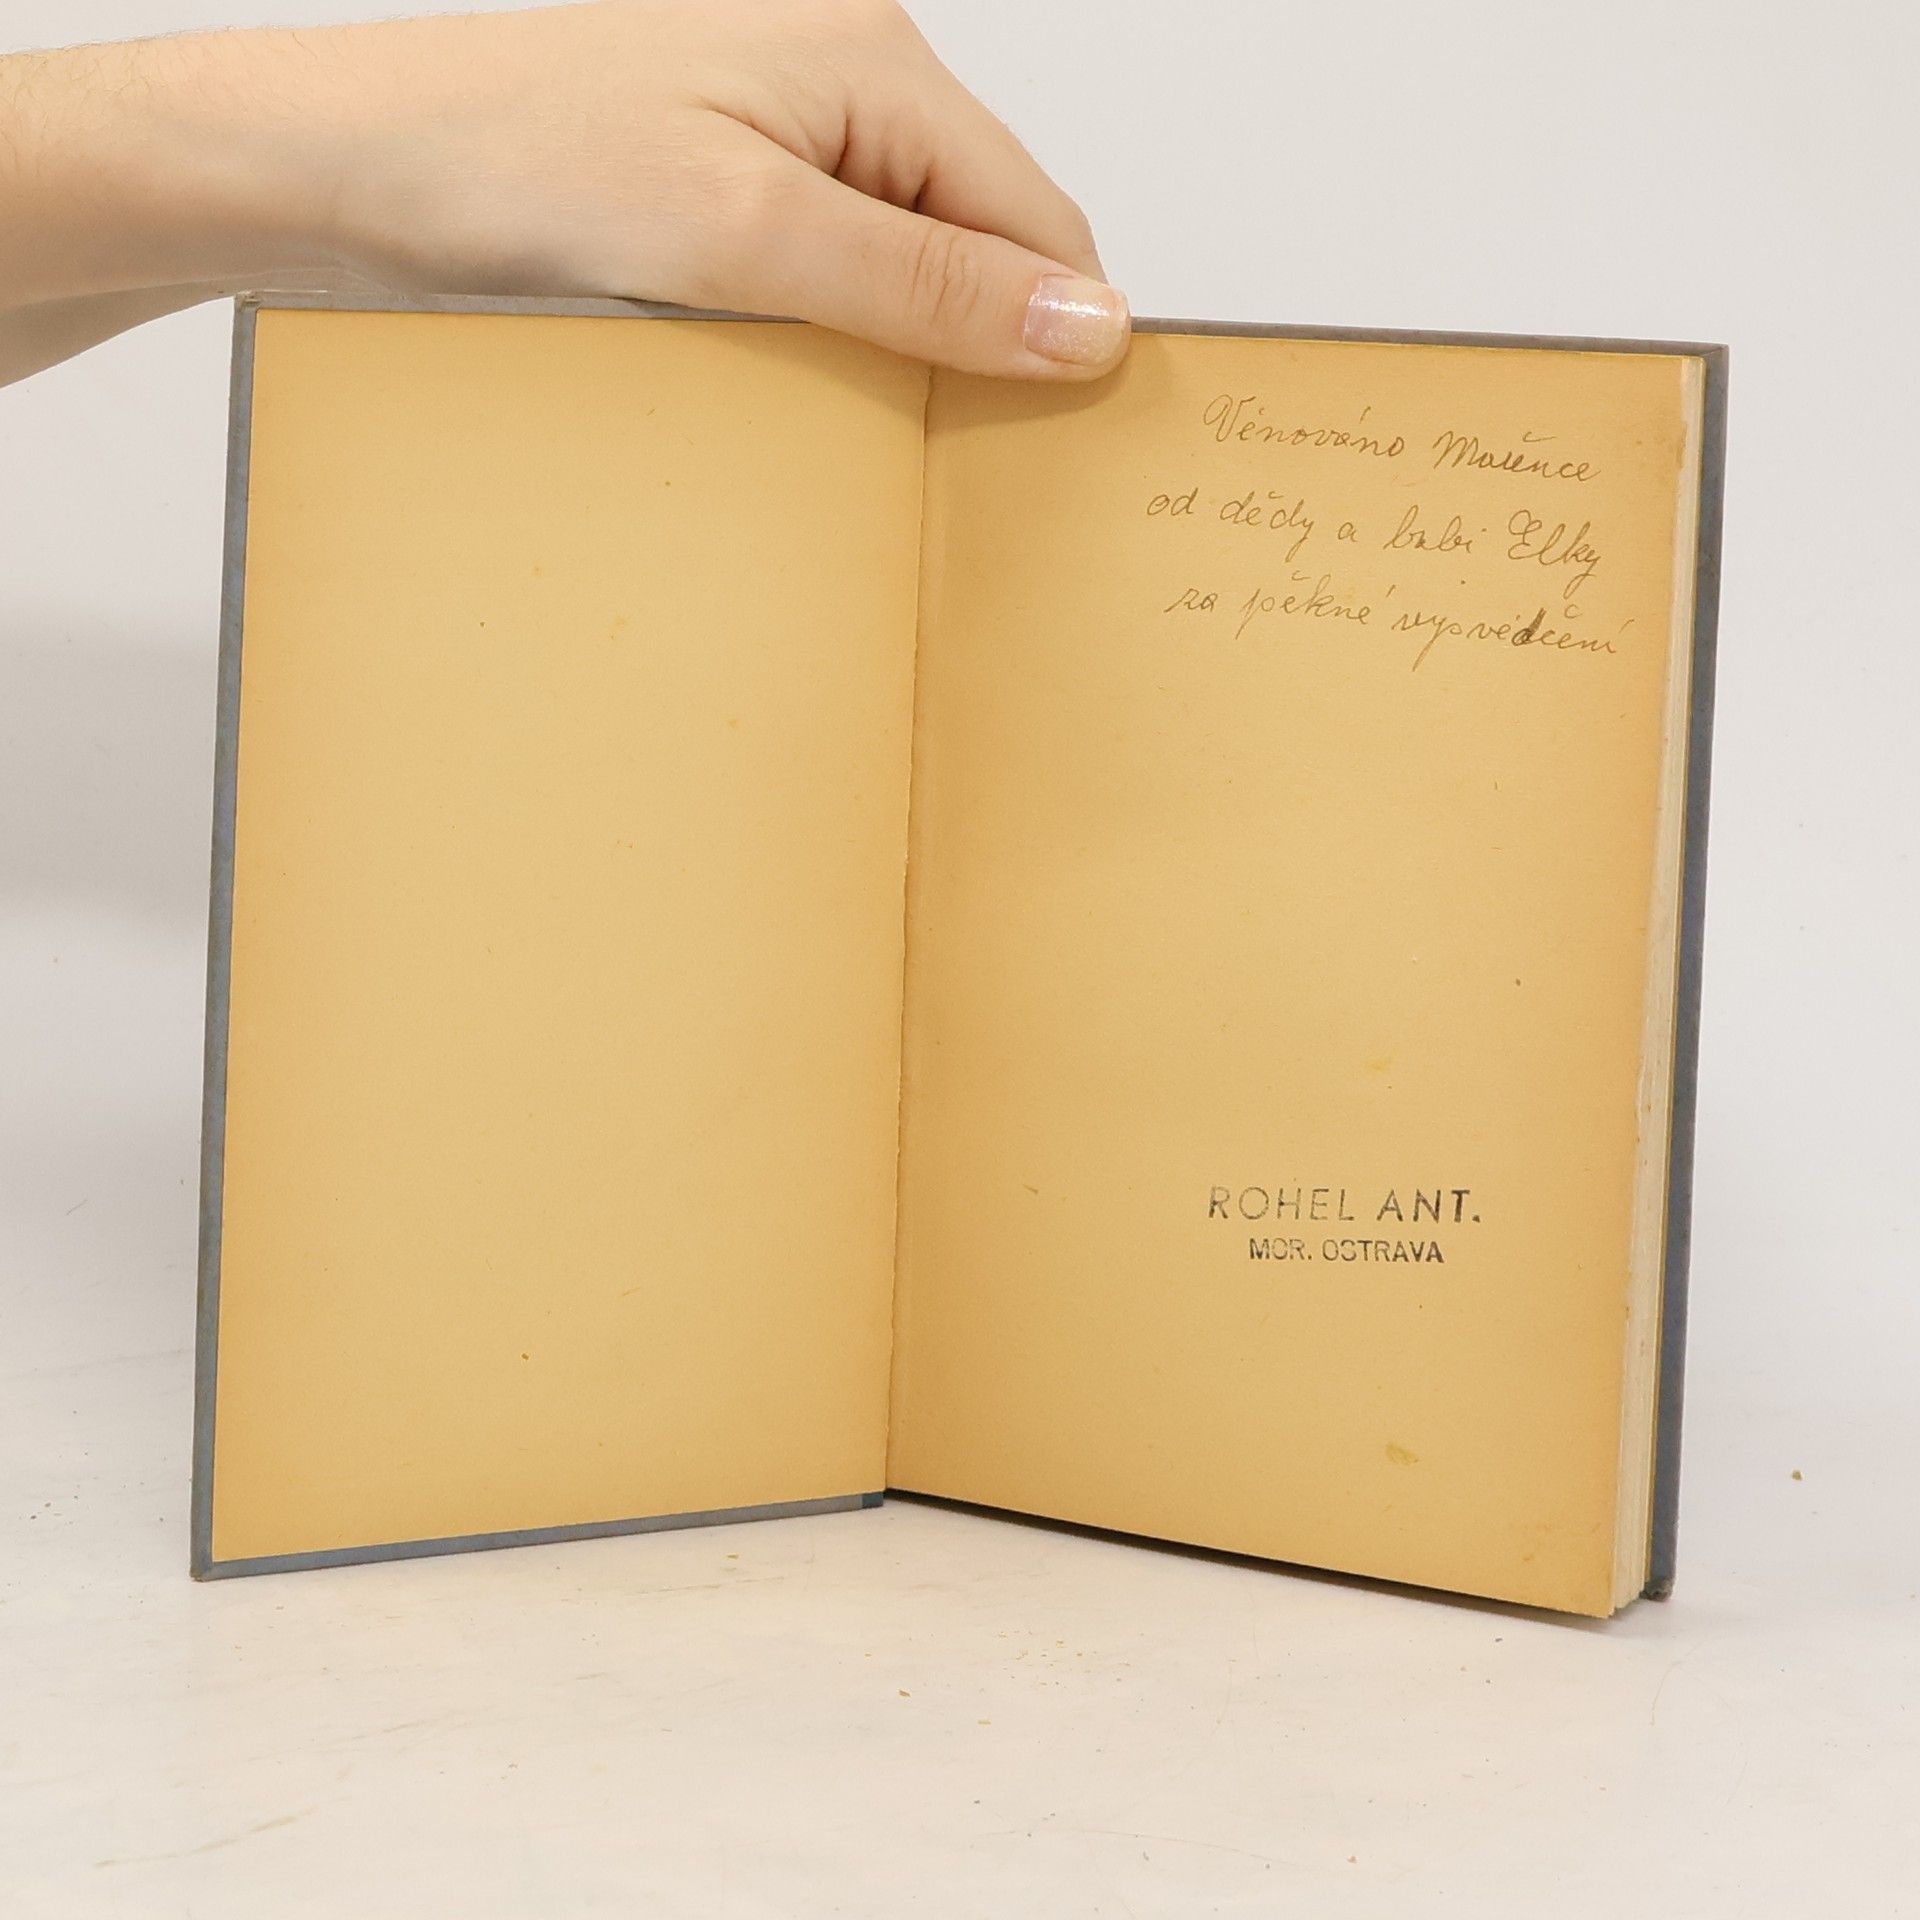 Věnováno Mařence
od dědy a babi Elky
za pěkné vysvědčení
ROHEL ANT.
MOR. OSTRAVA